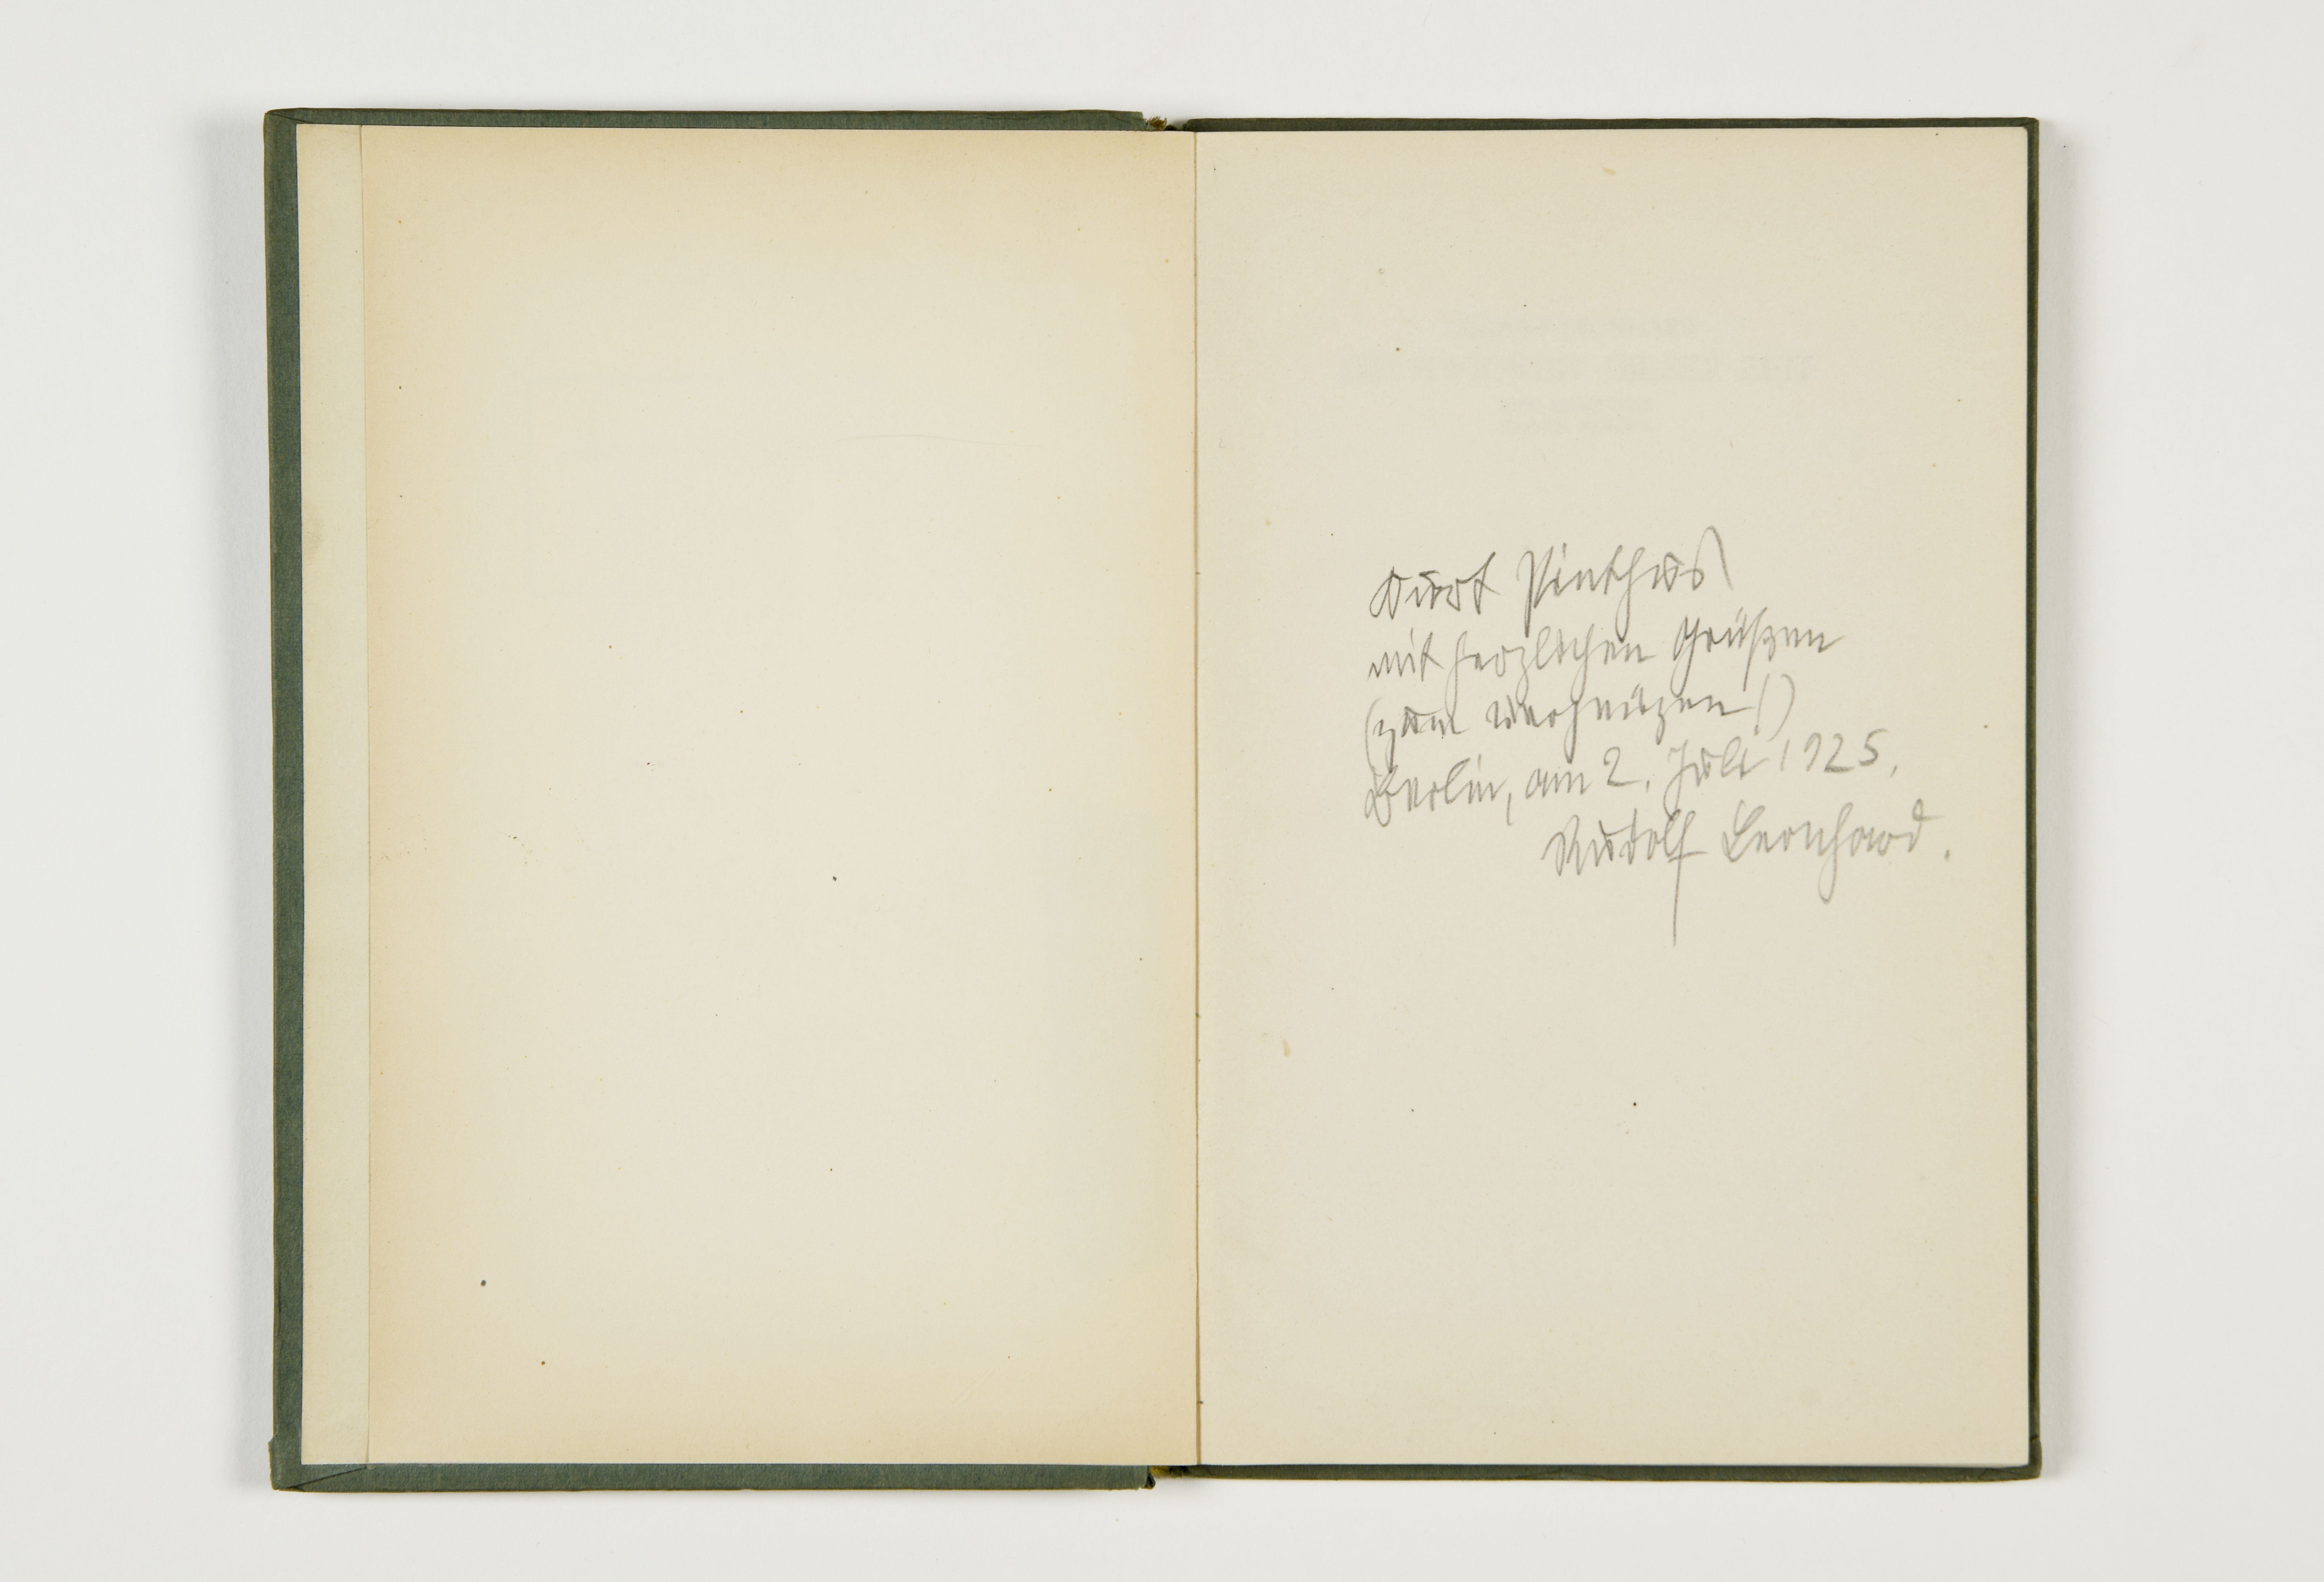 Kurt Pinthus
mit herzlichen Grüßen
(zum Vergnügen!)
Berlin, am 2. Juli 1925.
Rudolf Leonhard.